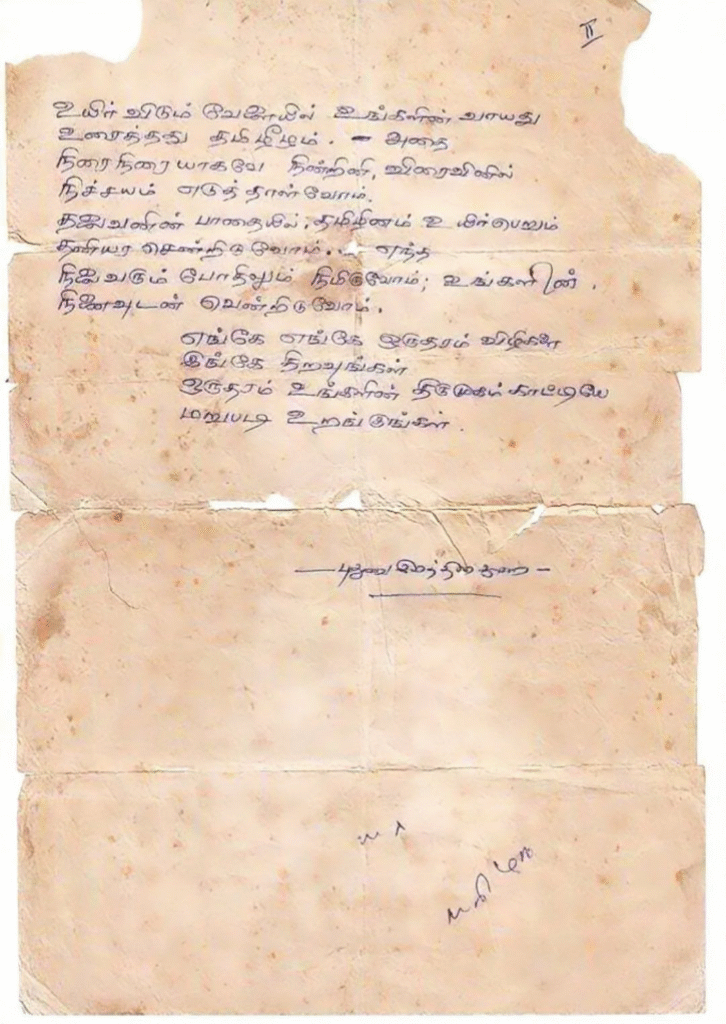 II
உயிர் விடும் வேளையில் உங்களின் வாயது
உரைத்தது தமிழீழம். - அதை
நிரை நிரையாகவே நின்றினி, விரைவினில்
நிச்சயம் எடுத்தாள்வோம்.
தலைவனின் பாதையில், தமிழினம் உயிர்பெறும்
தனியர சென்றிடுவோம்... எந்த
நிலைவரும் போதிலும் நிமிருவோம்; உங்களின்.
நினைவுடன் வென்றிடுவோம்.
எங்கே எங்கே ஒருதரம் விழிகளை
இங்கே திறவுங்கள்
ஒருதரம் உங்களின் திருமுகம் காட்டியே
மறுபடி உறங்குங்கள்.
— புதுவை இரத்தினதுரை —